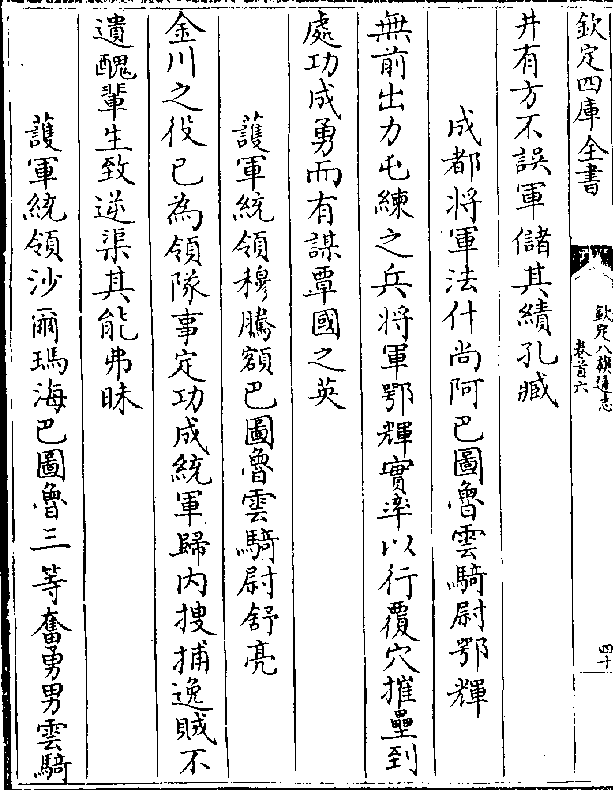 欽定四庫全書
欽定八旗通志
卷首六
四十
井有方不誤軍儲其績孔臧
成都將軍法什尚阿巴圖魯雲騎尉鄂輝
無前出力屯練之兵將軍鄂輝實率以行覆穴摧壘到
處功成勇而有謀覃國之英
護軍統領穆騰額巴圖魯雲騎尉舒亮
金川之役已為領隊事定功成統軍歸內搜捕逸賊不
遺醜輩生致逆渠其能弗昧
護軍統領沙爾瑪海巴圖魯三等奮勇男雲騎